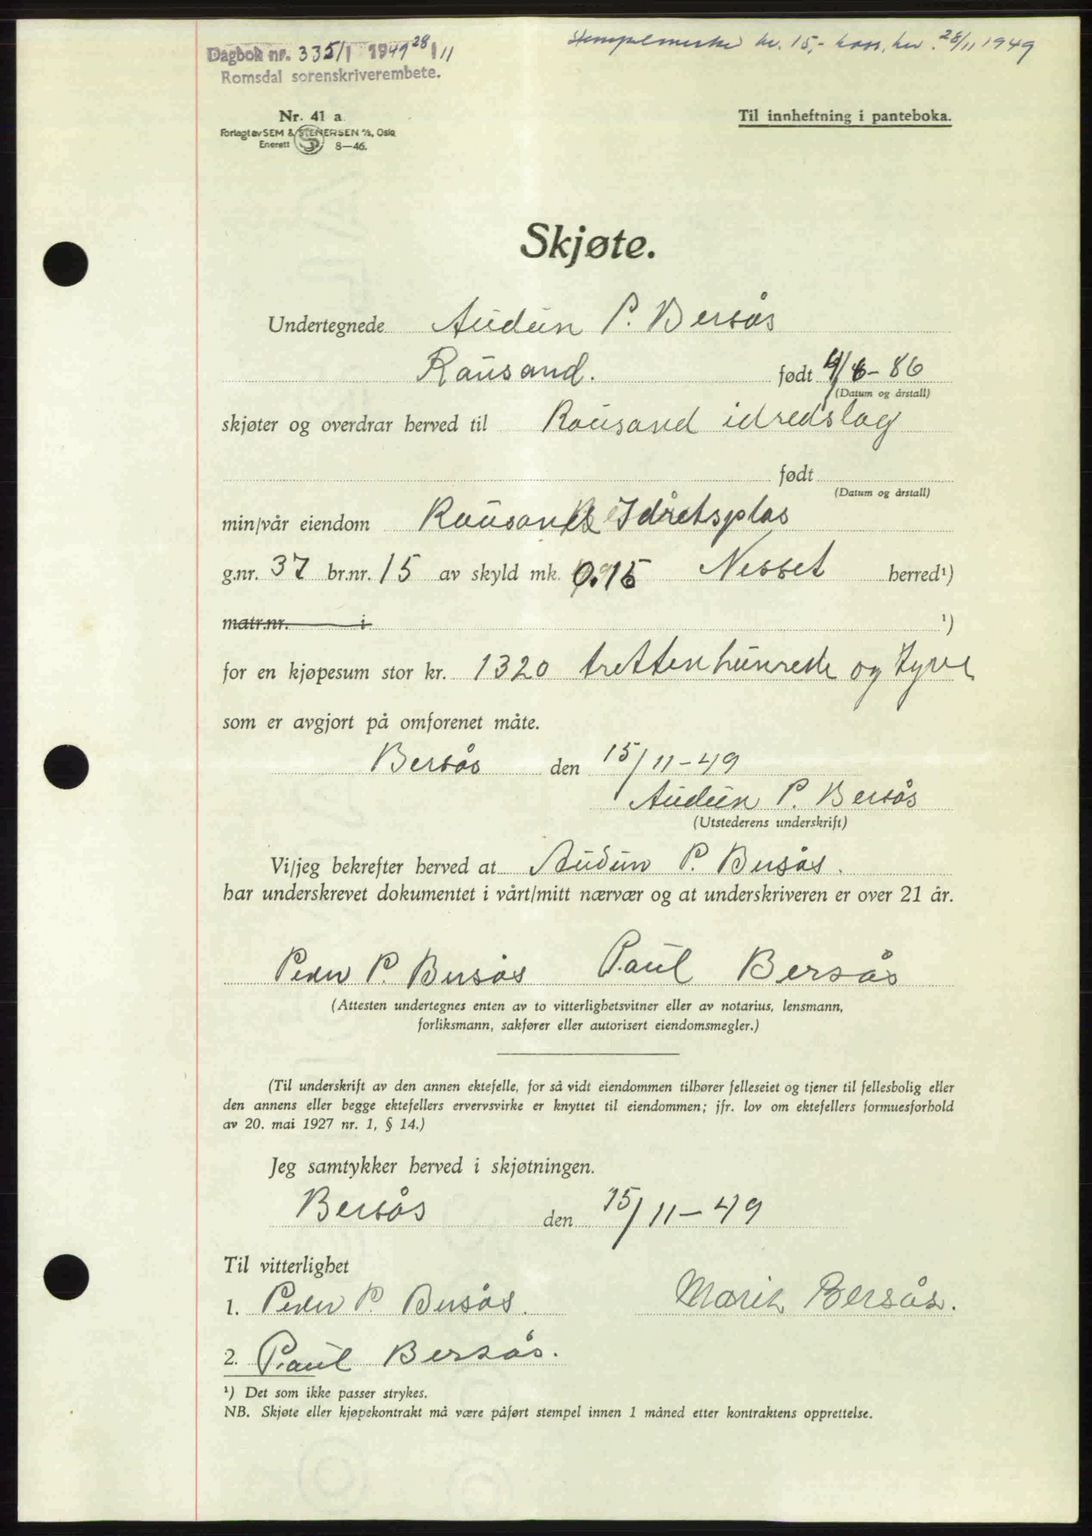 Stempelmerke kr. 15,- kass. her. 28/11 1949
Dagbok nr. 3351 1949 28/11
Romsdal sorenskriverembete.
Nr. 41 a
Forlagt av SEM & STENERSEN A/S, Oslo
Enerett 8—46.
Til innheftning i panteboka.
Skjøte.
Undertegnede Audun P. Bersås
Rausand. født 4/6-86
(Datum og årstall)
skjøter og overdrar herved til Rausand idredslag
født
(Datum og årstall)
min/vår eiendom Rausand Idretsplas
g.nr. 37 br.nr. 15 av skyld mk. 0.15 Nesset herred¹)
matr.nr. i ¹)
for en kjøpesum stor kr. 1320 trettenhunrede og tyve
som er avgjort på omforenet måte.
Bersås den 15/11-49
Audun P. Bersås
(Utstederens underskrift)
Vi/jeg bekrefter herved at Audun P. Bersås.
har underskrevet dokumentet i vårt/mitt nærvær og at underskriveren er over 21 år.
Peder P. Bersås Paul Bersås
(Attesten undertegnes enten av to vitterlighetsvitner eller av notarius, lensmann,
forliksmann, sakfører eller autorisert eiendomsmegler.)
(Til underskrift av den annen ektefelle, for så vidt eiendommen tilhører felleseiet og tjener til fellesbolig eller
den annens eller begge ektefellers ervervsvirke er knyttet til eiendommen; jfr. lov om ektefellers formuesforhold
av 20. mai 1927 nr. 1, § 14.)
Jeg samtykker herved i skjøtningen.
Bersås den 15/11-49
Til vitterlighet
1. Peder P. Bersås. Marit Bersås.
2. Paul Bersås.
¹) Det som ikke passer strykes.
NB. Skjøte eller kjøpekontrakt må være påført stempel innen 1 måned etter kontraktens opprettelse.